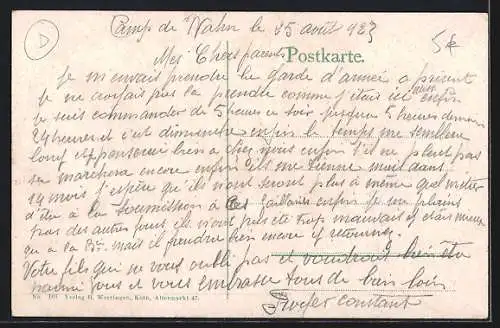 D
Camp de Wahn le 15 août 1923
5€
Mes Chers parents
Postkarte.
Je m'en vais prendre la garde d'armée a présent
je ne croyais pas la prendre comme j'étais ici enfin
je suis commander de 5 heures ce soir jusque 5 heures demain
24 heures et c'est dimanche enfin le temps me semblera
long et penserai bien a chez nous enfin s'il ne pleut pas
sa marchera encore enfin ils me tienne mais dans
14 mois j'espère qu'ils nous seront plus à même de me mettre
à la soumission à enfin je me plains
pas des autres fois ils n'ont pas été trop mauvais
qu a la Bie mais il prendre bien encore y retourner.
Votre fils qui ne vous oubli pas et voudrait bien être
parmi vous et vous embrasse tous de bien loin
Roger constant
No. 101 Verlag H. Worringen, Köln, Altermarkt 47.